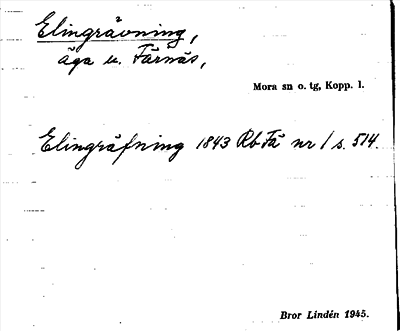 Elingrävning,
äga u. Färnäs,
Mora sn o. tg, Kopp. l.
Elingräfning 1843 Rb Fä nr 1 s. 514.
Bror Lindén 1945.